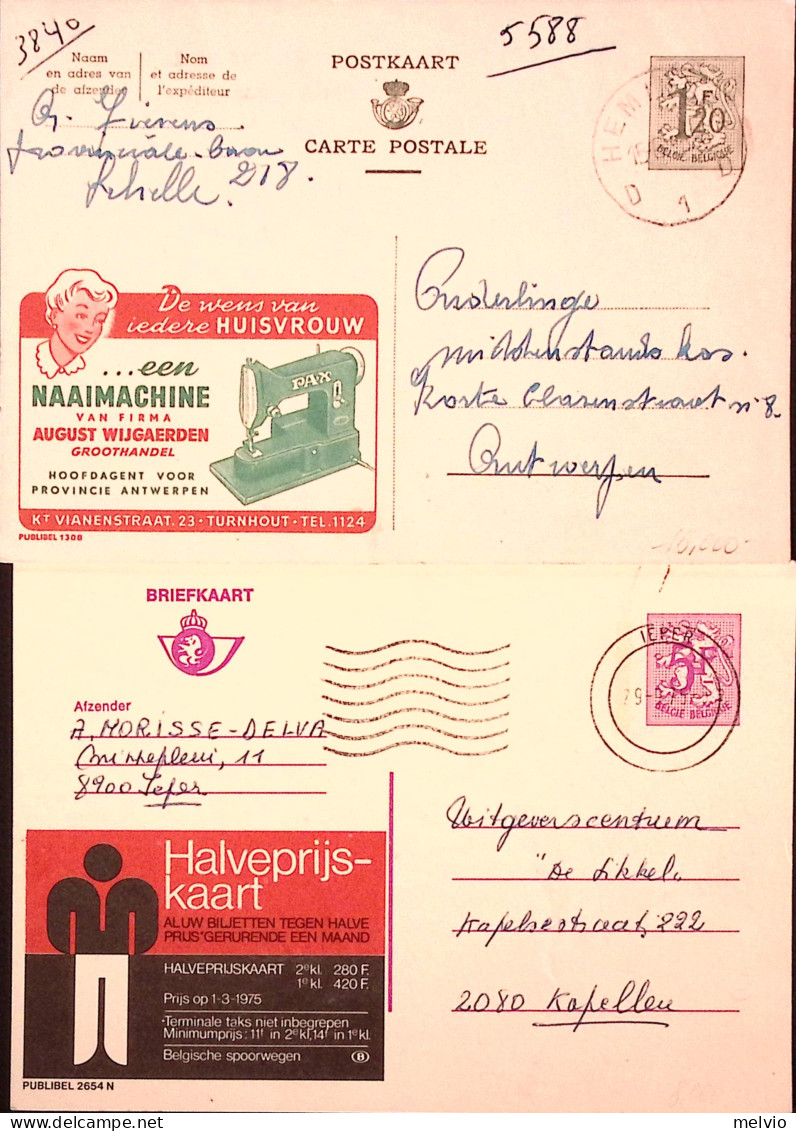 3840
5588
Naam
en adres van
de afzender
Nom
et adresse de
l'expéditeur
POSTKAART
CARTE POSTALE
1F20
BELGIE BELGIQUE
HEM
15
D 1 D
G. Lievens
Provinciale baan
218.
Schelle.
De wens van
iedere HUISVROUW
...een
NAAIMACHINE
VAN FIRMA
AUGUST WIJGAERDEN
GROOTHANDEL
HOOFDAGENT VOOR
PROVINCIE ANTWERPEN
PAX
KT VIANENSTRAAT. 23 · TURNHOUT · TEL. 1124
PUBLIBEL 1308
Onderlinge
middenstands kas.
Korte Clarenstraat nr 8.
Antwerpen
10,000
BRIEFKAART
Afzender
A. MORISSE-DELVA
11
8900 Ieper
IEPER
5F
BELGIE BELGIQUE
Halveprijs-
kaart
AL UW BILJETTEN TEGEN HALVE
PRIJS GEDURENDE EEN MAAND
HALVEPRIJSKAART 2e kl. 280 F.
1e kl. 420 F.
Prijs op 1-3-1975
Terminale taks niet inbegrepen
Minimumprijs: 11f in 2e kl, 14f in 1e kl.
Belgische spoorwegen B
PUBLIBEL 2654 N
Uitgeverscentrum
"De Sikkel"
Kapelsestraat, 222
2080 Kapellen
melvio